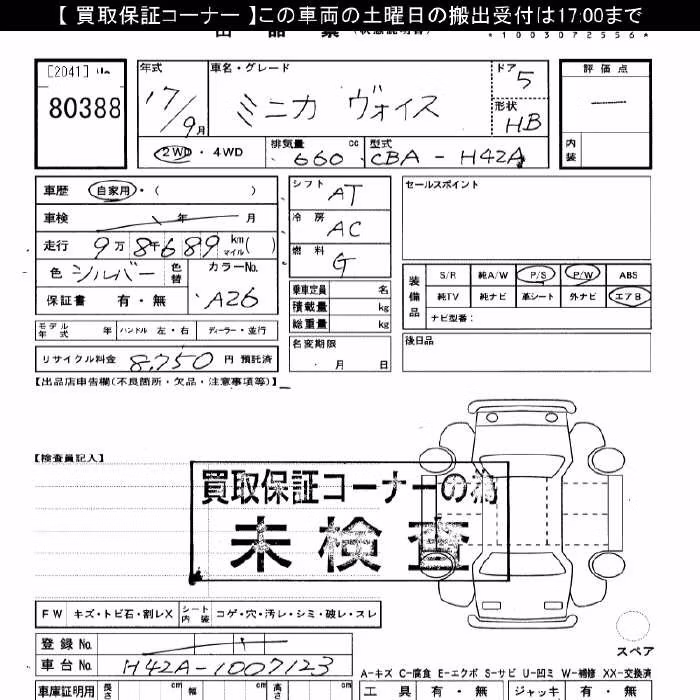 【 買取保証コーナー 】この車両の土曜日の搬出受付は17:00まで
*1003072556*
[2041]
80388
年式
17/9月
車名・グレード
ミニカ ヴォイス
ドア 5
形状 HB
評価点
内装
2WD・4WD
排気量 660 cc
型式 CBA-H42A
車歴 自家用・( )
車検 年 月
走行 9万8千689 km マイル( )
色 シルバー 色替
カラーNo. A26
保証書 有・無
シフト AT
冷房 AC
燃料 G
乗車定員 名
積載量 kg
総重量 kg
名変期限
月 日
セールスポイント
装備品
S/R 純A/W P/S P/W ABS
純TV 純ナビ 革シート 外ナビ エアB
ナビ型番:
後日品
モデル年式 年 ハンドル 左・右 ディーラー・並行
リサイクル料金 8,750 円 預託済
【出品店申告欄(不良箇所・欠品・注意事項等)】
【検査員記入】
買取保証コーナーの為
未検査
FW キズ・トビ石・割レX シート内装 コゲ・穴・汚レ・シミ・破レ・スレ
スペア
登録No.
車台No. H42A-1007123
A-キズ C-腐食 E-エクボ S-サビ U-凹ミ W-補修 XX-交換済
車庫証明用 長さ cm 幅 cm 高さ cm
工具 有・無 ジャッキ 有・無